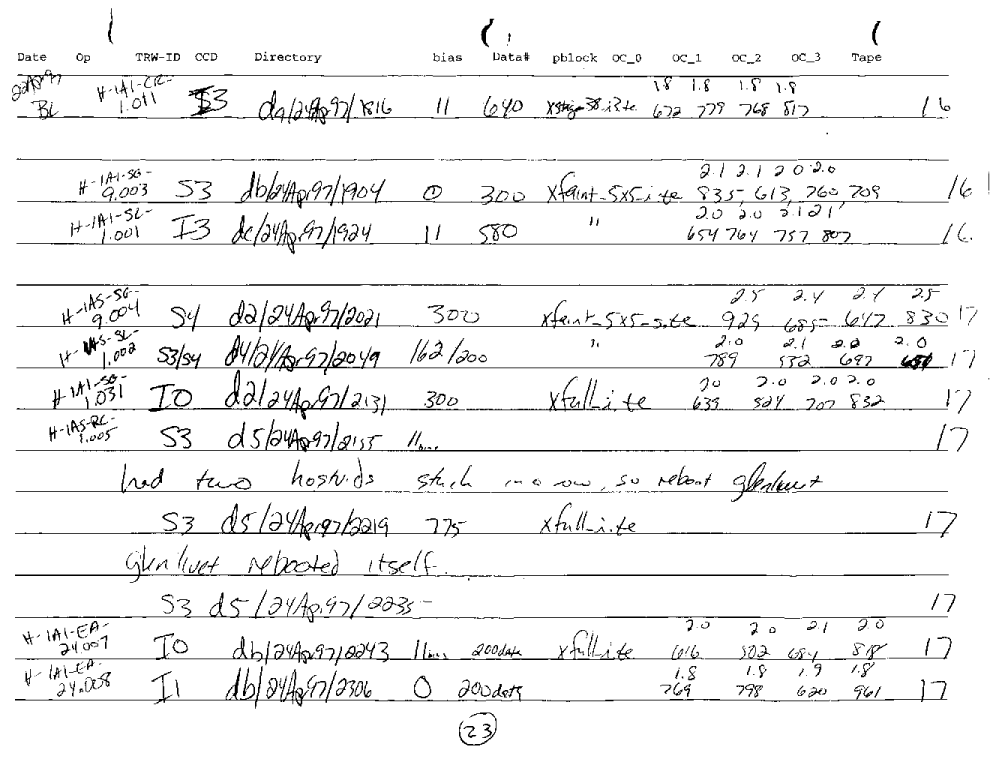 Date Op TRW-ID CCD Directory bias Data# pblock OC_0 OC_1 OC_2 OC_3 Tape
H-1A1-CR- 1.8 1.8 1.8 1.8
BL 1.011 I3 da/24Apr97/1816 11 640 672 779 768 817 16
H-1A1-SG- 2.1 2.1 2.0 2.0
9.003 S3 db/24Apr97/1904 0 300 xfaint_5x5_ite 835, 613, 760, 709 16
H-1A1-SL- 2.0 2.0 2.1 2.1
1.001 I3 dc/24Apr97/1924 11 580 " 654 764 757 807 16
H-1AS-SG- 2.5 2.4 2.4 2.5
9.004 S4 d2/24Apr97/2021 300 xfaint_5x5_site 925 685 647 830 17
H-1AS-SL- 2.0 2.1 2.2 2.0
1.002 S3/S4 d4/24Apr97/2049 162/200 " 789 532 697 17
H-1A1-SG- 2.0 2.0 2.0 2.0
1.031 I0 d2/24Apr97/2131 300 xfull_i.te 639 524 707 832 17
H-1AS-RC-
1.005 S3 d5/24Apr97/2155 11 bias 17
had two hostvids stuck in a row, so reboot glenlivet
S3 d5/24Apr97/2219 775 xfull_i.te 17
Glenlivet rebooted itself.
S3 d5/24Apr97/2235- 17
H-1A1-EA- 2.0 2.0 2.1 2.0
24.007 I0 db/24Apr97/2243 11 bias 200 data xfull_i.te 616 502 684 818 17
H-1A1-EA- 1.8 1.8 1.9 1.8
24.008 I1 db/24Apr97/2306 0 200 data 769 798 620 961 17
23